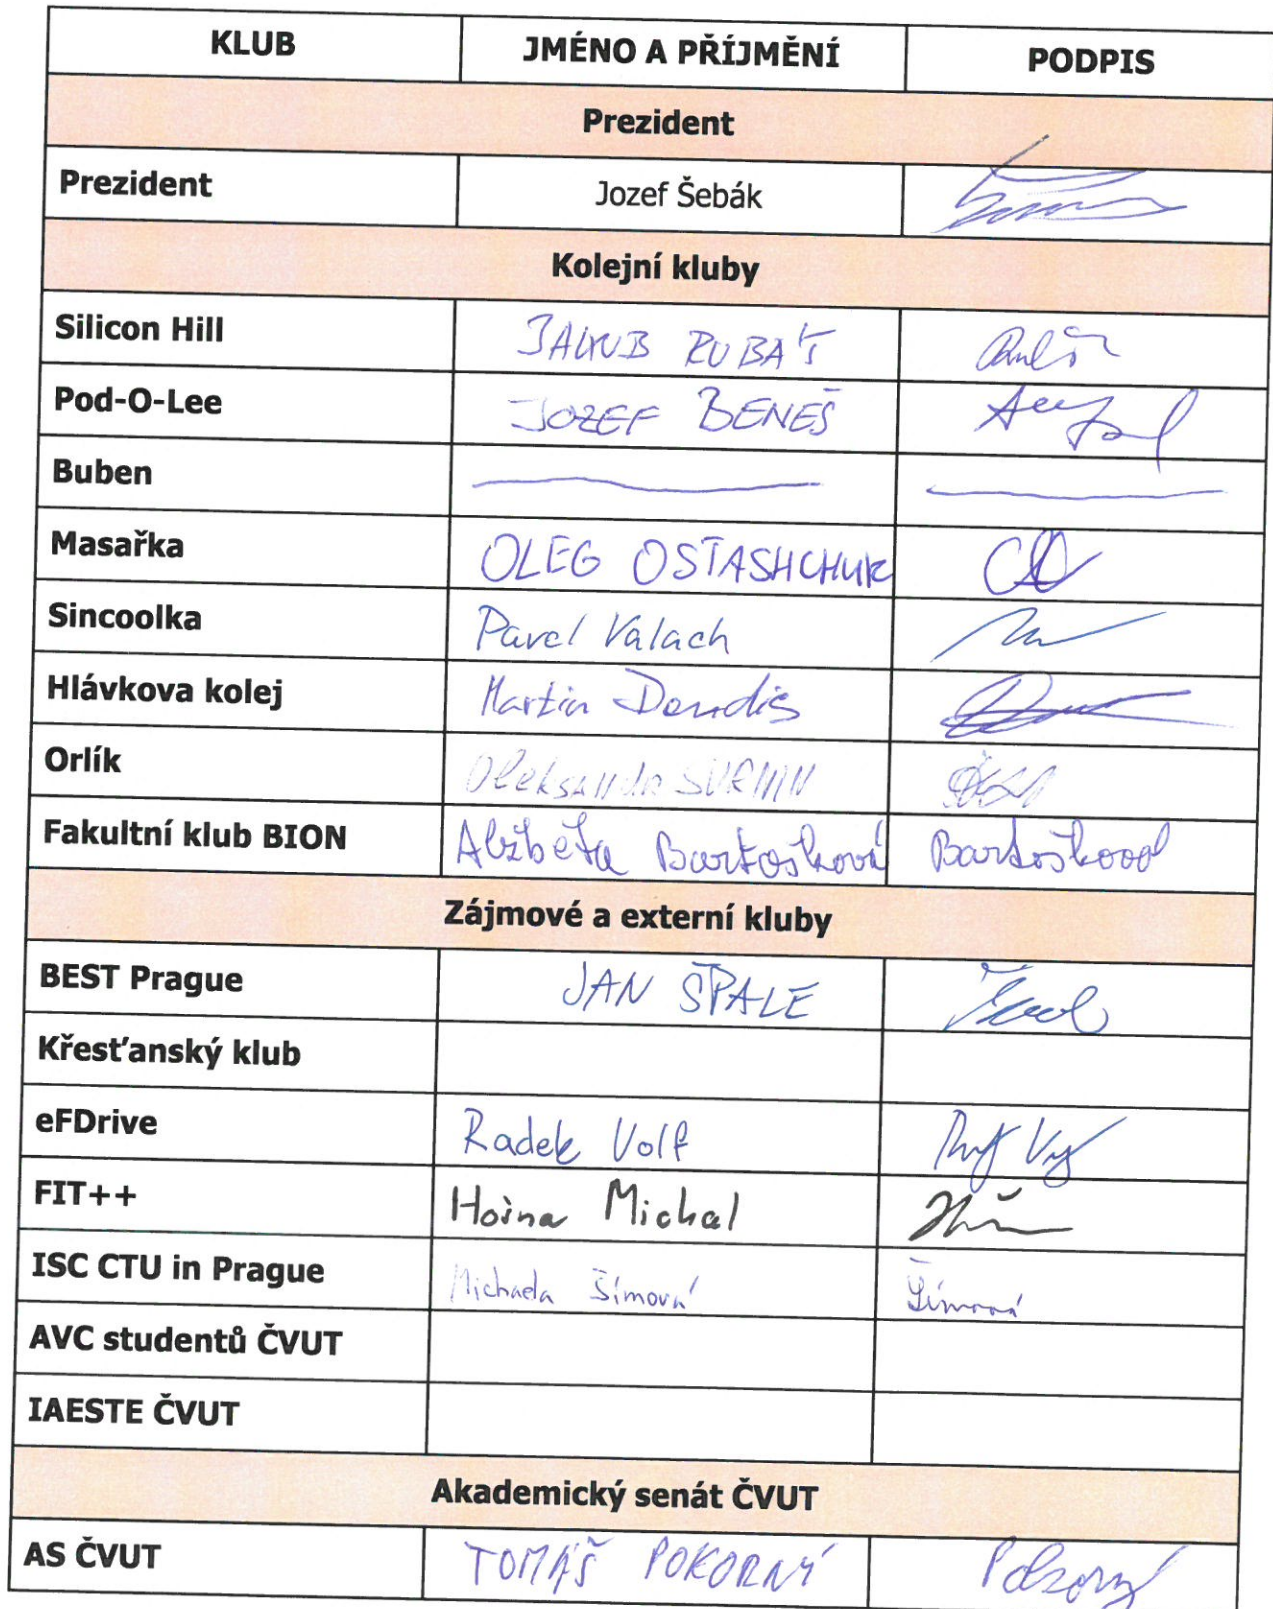 KLUB JMÉNO A PŘÍJMĚNÍ PODPIS
Prezident
Prezident Jozef Šebák
Kolejní kluby
Silicon Hill JAKUB RUBÁŠ
Pod-O-Lee JOZEF BENEŠ
Buben
Masařka OLEG OSTASHCHUK
Sincoolka Pavel Valach
Hlávkova kolej Martin Dendis
Orlík
Fakultní klub BION Alžběta Bartošková Bartošková
Zájmové a externí kluby
BEST Prague JAN ŠPALE
Křesťanský klub
eFDrive Radek Volf
FIT++ Michal
ISC CTU in Prague Michaela Šímová Šímová
AVC studentů ČVUT
IAESTE ČVUT
Akademický senát ČVUT
AS ČVUT TOMÁŠ POKORNÝ Pokorný